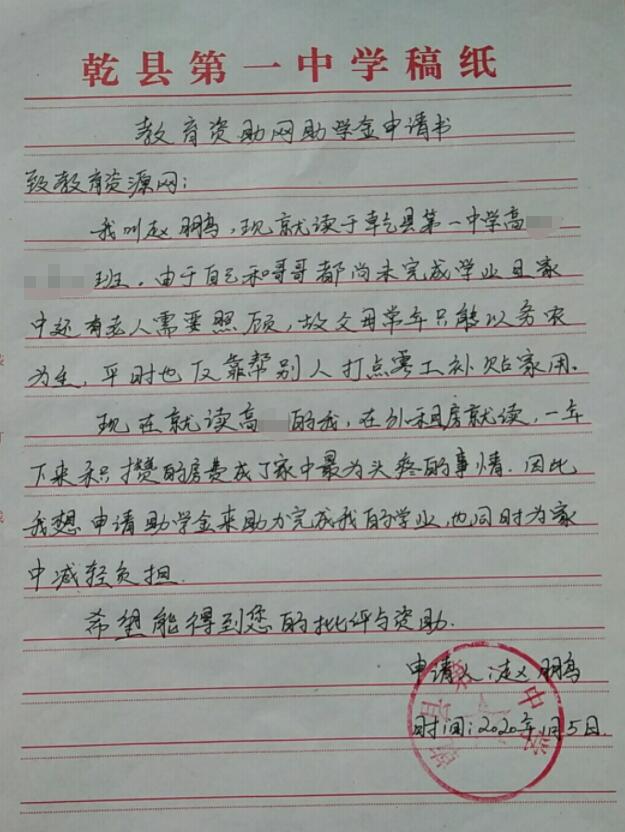 乾县第一中学稿纸
教育资助网助学金申请书
致教育资源网：
我叫赵鹏，现就读于乾县第一中学高
班。由于自己和哥哥都尚未完成学业且家
中还有老人需要照顾，故父母常年只能以务农
为生，平时也仅靠帮别人打点零工补贴家用。
现在就读高的我，在外租房就读，一年
下来积攒的房费成了家中最为头疼的事情。因此，
我想申请助学金来助力完成我的学业，也同时为家
中减轻负担。
希望能得到您的批评与资助。
申请人：赵鹏
时间：2020年1月5日.